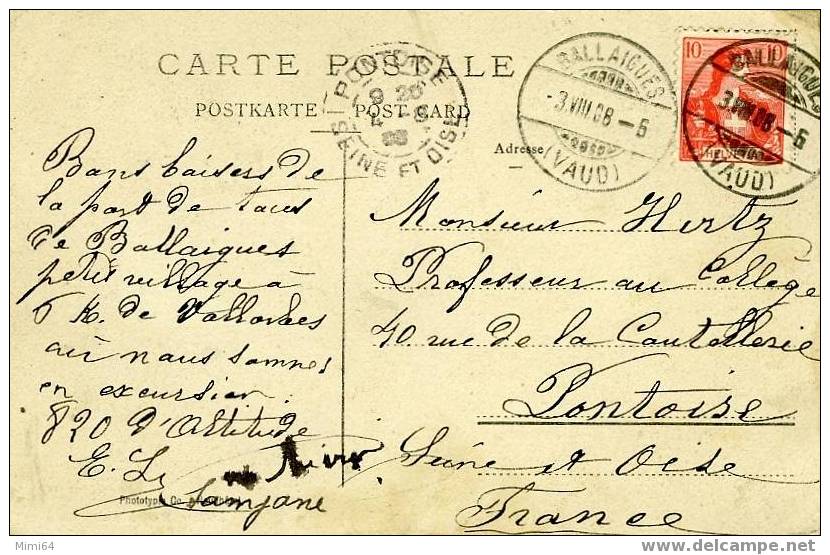 CARTE POSTALE
POSTKARTE — POST CARD
PONTOISE
SEINE ET OISE
BALLAIGUES
-3.VIII.08-6
(VAUD)
10 10
HELVETIA
BALLAIGUES
-3.VIII.08-6
(VAUD)
Adresse
Bons baisers de
la part de tous
de Ballaigues
petit village à
6 K. de Vallorbes
où nous sommes
en excursion.
820 d'Altitude
E. L
Monsieur Hertz
Professeur au Collège
40 rue de la Coutellerie
Pontoise
Seine et Oise
France
Phototypie Co.
Mimi64
www.delcampe.net